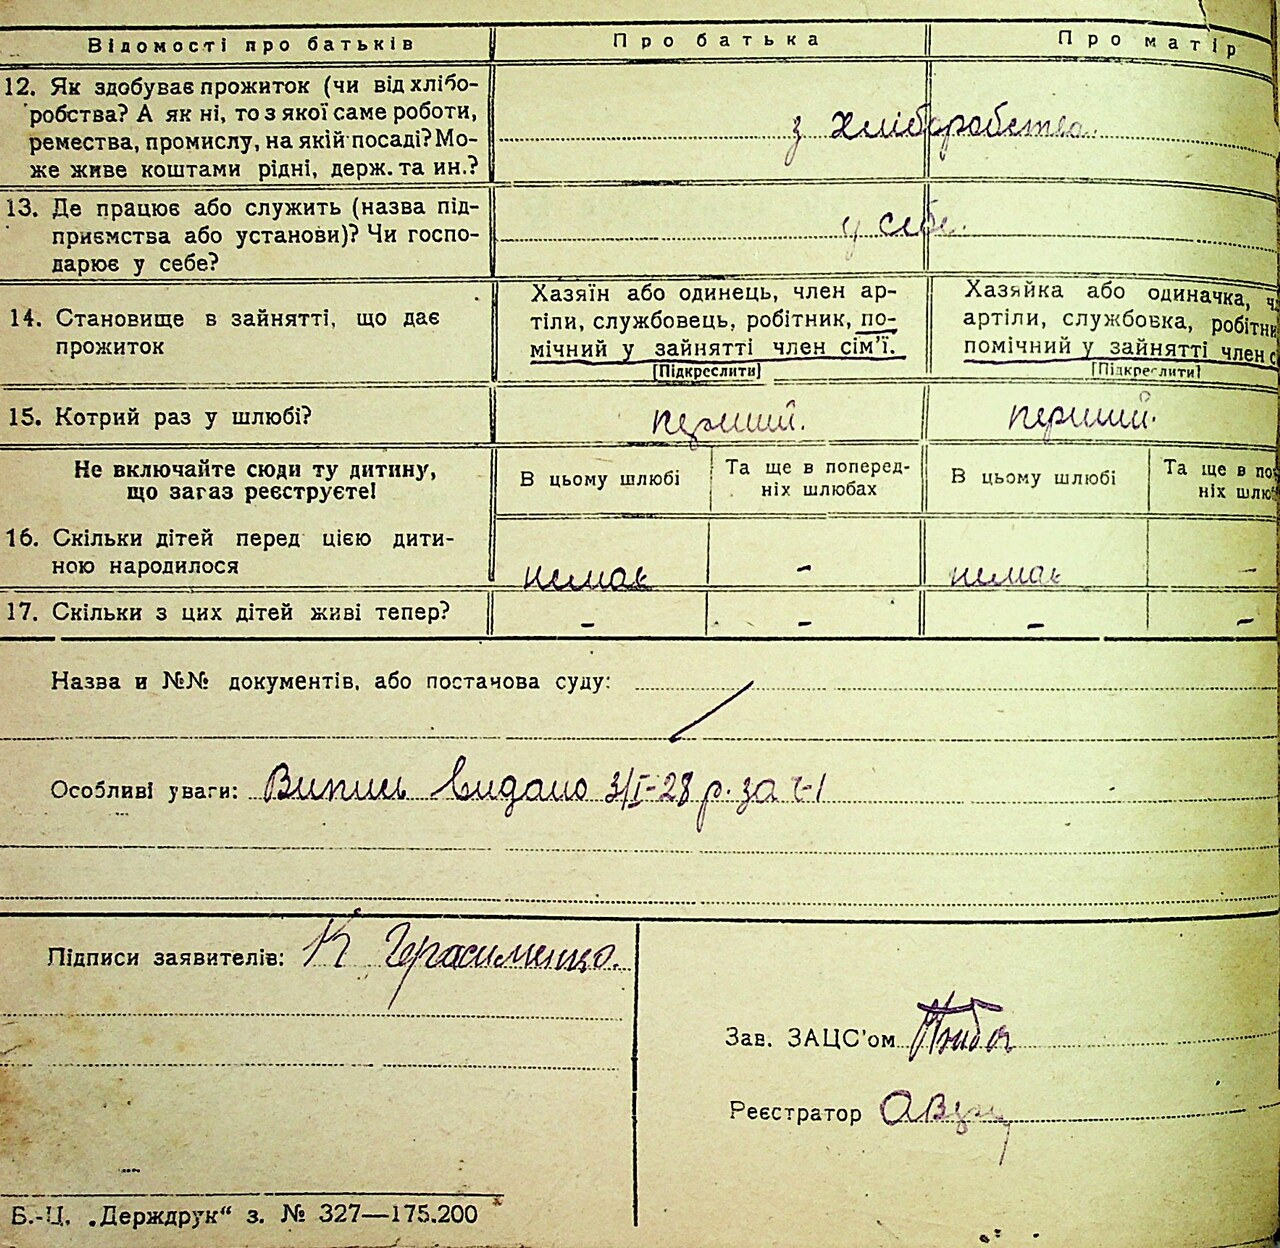 Відомості про батьків Про батька Про матір
12. Як здобуває прожиток (чи від хлібо-
робства? А як ні, то з якої саме роботи,
ремества, промислу, на якій посаді? Мо-
же живе коштами рідні, держ. та ин.?
з хліборобства.
13. Де працює або служить (назва під-
приємства або установи)? Чи госпо-
дарює у себе?
у себе.
14. Становище в зайнятті, що дає
прожиток
Хазяїн або одинець, член ар-
тіли, службовець, робітник, по-
мічний у зайнятті член сім'ї.
[Підкреслити]
Хазяйка або одиначка, ч
артіли, службовка, робітни
помічний у зайнятті член с
[Підкреслити]
15. Котрий раз у шлюбі? перший. перший.
Не включайте сюди ту дитину,
що загаз реєструєте!
В цьому шлюбі
Та ще в поперед-
ніх шлюбах
В цьому шлюбі
Та ще в по
ніх шлюб
16. Скільки дітей перед цією дити-
ною народилося
немає - немає -
17. Скільки з цих дітей живі тепер? - - - -
Назва и №№ документів, або постанова суду:
Особливі уваги: Випись видано 3/I-28 р. за ч-1
Підписи заявителів: К Герасименко.
Зав. ЗАЦС'ом
Реєстратор
Б.-Ц. „Держдрук“ з. № 327—175.200